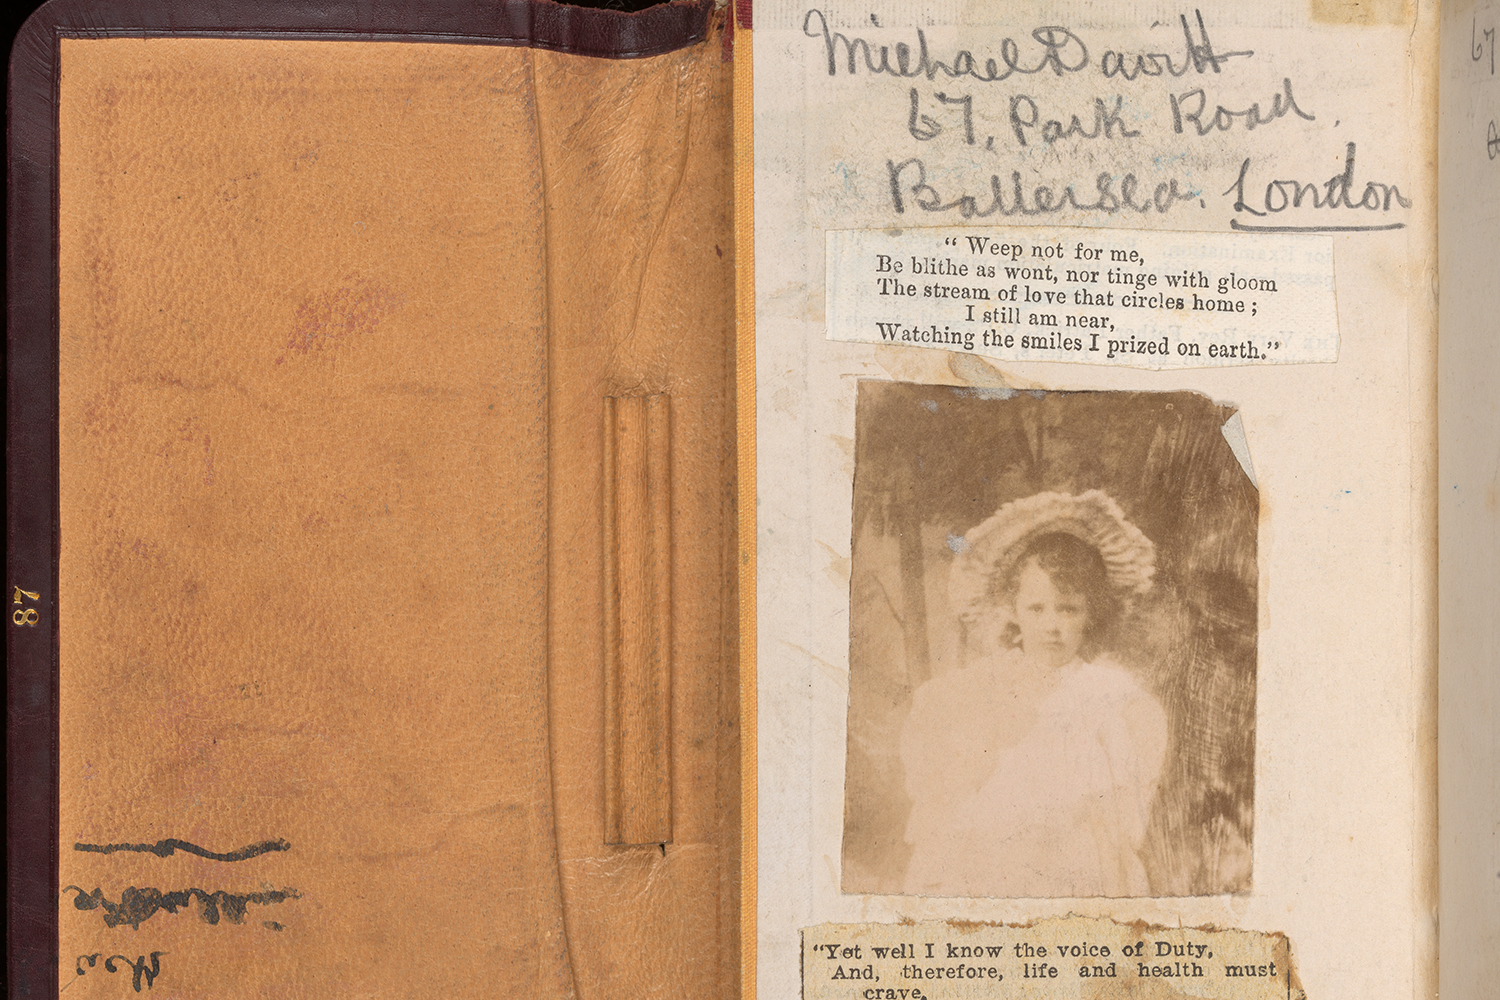 87
Michael Davitt
67, Park Road.
Battersea. London
“ Weep not for me,
Be blithe as wont, nor tinge with gloom
The stream of love that circles home ;
I still am near,
Watching the smiles I prized on earth.”
“Yet well I know the voice of Duty,
And, therefore, life and health must
crave,
67